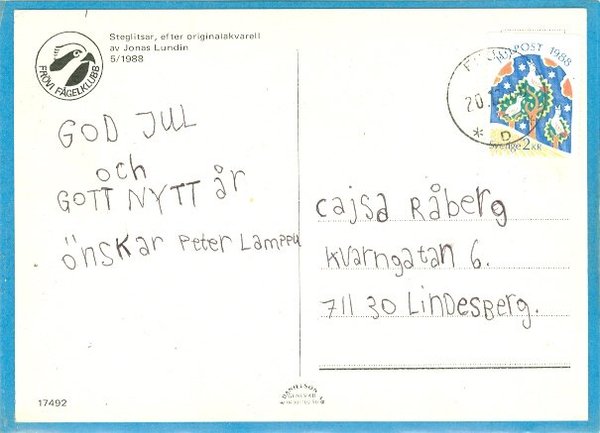 Steglitsar, efter originalakvarell
av Jonas Lundin
5/1988
FRÖVI FÅGELKLUBB
GOD JUL
och
GOTT NYTT åR
önskar Peter Lamppu
JULPOST 1988
20.1
* D
Sverige 2 KR
cajsa Råberg
Kvarngatan 6.
711 30 Lindesberg.
17492